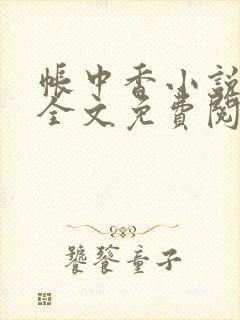 帳中香小說
全文免費閱
饕餮童子